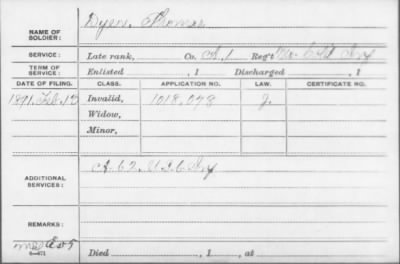 NAME OF SOLDIER: Dyson, Thomas
SERVICE: Late rank, Co. A, 1 Reg't Mo. Col'd Inf
TERM OF SERVICE: Enlisted , 1 Discharged , 1
DATE OF FILING. CLASS. APPLICATION NO. LAW. CERTIFICATE NO.
1891, Feb. 13 Invalid, 1018.078 J.
Widow,
Minor,
ADDITIONAL SERVICES: A. 62. U.S.C. Inf
REMARKS:
3—071
Died , 1 , at